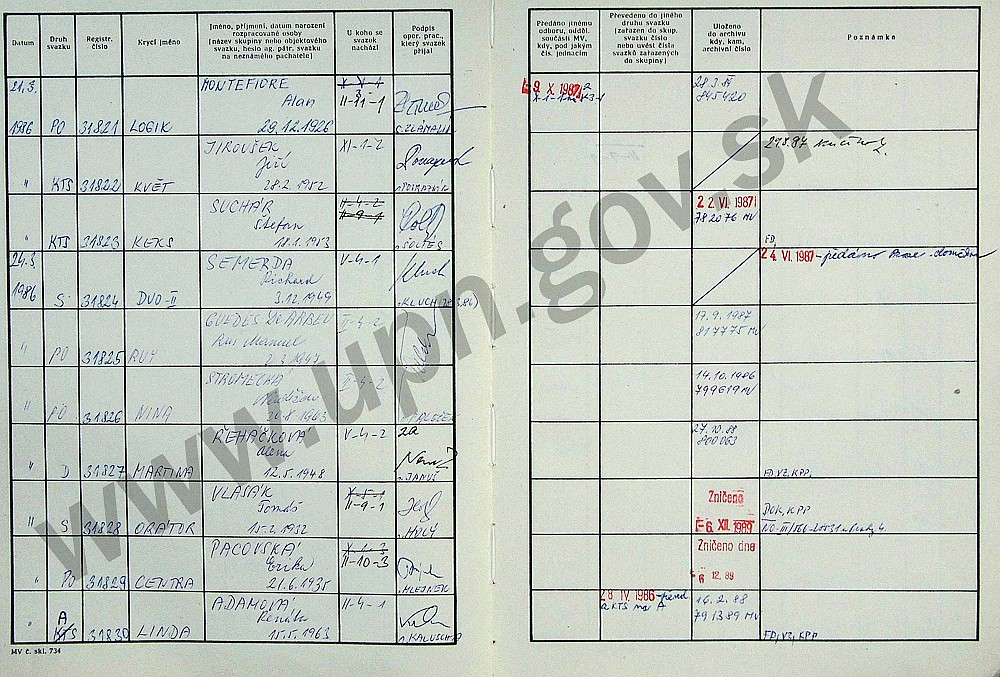 Datum
Druh svazku
Registr. číslo
Krycí jméno
Jméno, příjmení, datum narození
rozpracované osoby
(název skupiny nebo objektového
svazku, heslo ag. pátr. svazku
na neznámého pachatele)
U koho se
svazek
nachází
Podpis
oper. prac.,
který svazek
přijal
Předáno jinému
odboru, odděl.
součásti MV,
kdy, pod jakým
čís. jednacím
Převedeno do jiného
druhu svazku
(zařazen do skup.
svazku číslo
nebo uvést čísla
svazků zařazených
do skupiny)
Uloženo
do archivu
kdy, kam,
archivní číslo
Poznámka
21.3.
1986 PO 31821 LOGIK
MONTEFIORE
Alan
29.12.1926
II-11-1
9. X. 1987
28.3.
845420
" KTS 31822 KVĚT
JIROUŠEK
Jiří
28.2.1952
XI-1-2
" KTS 31823 KEKS
SUCHÁR
Štefan
18.1.1953
II-4-2
II-9-1
ŠOLTÉS
22. VI. 1987
782076 MV
FD,
24.3.
1986 S 31824 DUO-II
SEMERDA
Richard
3.12.1949
V-4-1
KLUCH
24. VI. 1987 - předáno
" PO 31825 RUY
GUEDES DE ABREU
Rui Manuel
2.3.1947
II-4-2
17.9.1987
817775 MV
" PO 31826 NINA
STROMECKÁ
20.8.1943
II-4-2
14.10.1986
799619 MV
" D 31827 MARTINA
ŘEHÁČKOVÁ
Alena
12.5.1948
V-4-2
JANUŠ
27.10.88
800063
FD, VZ, KPP,
" S 31828 ORÁTOR
VLASÁK
Tomáš
15.2.1952
X-5-1
II-9-1
HOLÝ
Zničeno
-6. XII. 1989
DOK, KPP
" PO 31829 CENTRA
PACOVSKÁ
Erika
21.6.1935
II-10-3
MLEJNEK
Zničeno dne
-6 12. 89
" A
KTS 31830 LINDA
ADAMOVÁ
Renáta
15.5.1963
II-4-1
28 IV. 1986
z KTS na A
16.2.88
791389 MV
FD, VZ, KPP
MV č. skl. 734
www.upn.gov.sk